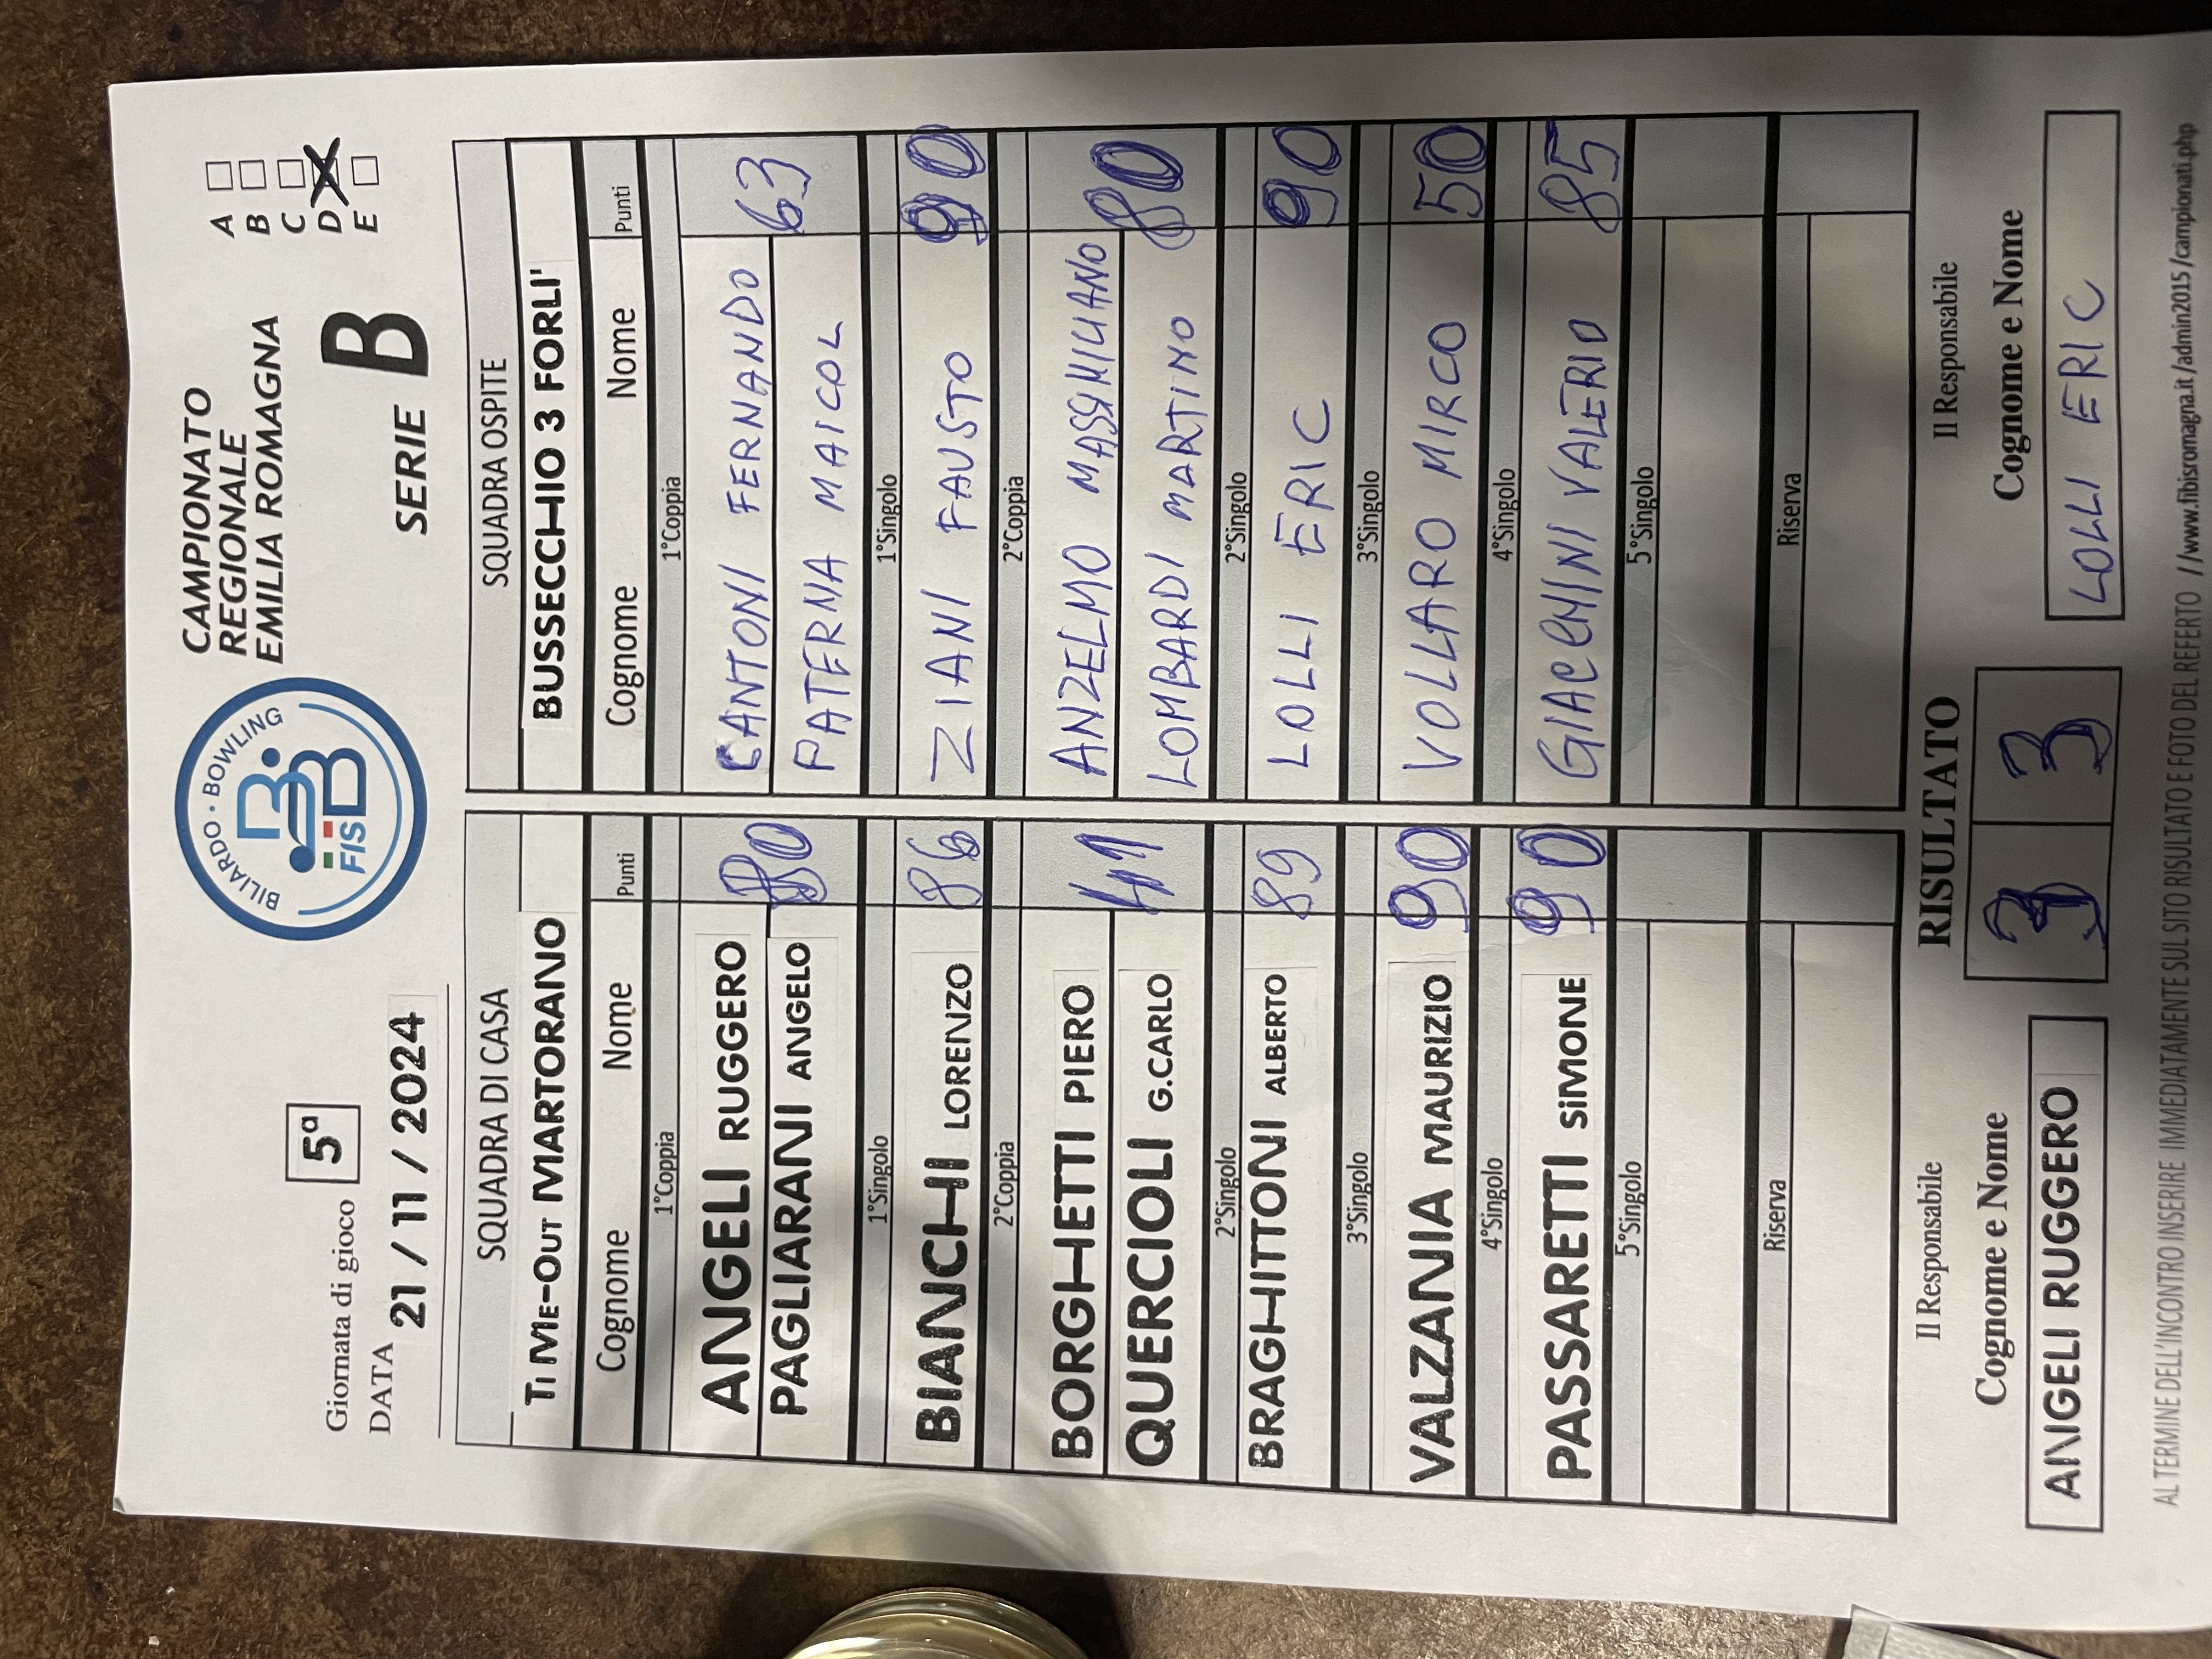 BILIARDO • BOWLING
FISBB
CAMPIONATO
REGIONALE
EMILIA ROMAGNA
SERIE B
A
B
C
D X
E
Giornata di gioco 5ª
DATA 21 / 11 / 2024
SQUADRA DI CASA
TiME-OUT MARTORANO
Cognome Nome Punti
1°Coppia
ANGELI RUGGERO 80
PAGLIARANI ANGELO
1°Singolo
BIANCHI LORENZO 86
2°Coppia
BORGHETTI PIERO 41
QUERCIOLI G.CARLO
2°Singolo
BRAGHITTONI ALBERTO 89
3°Singolo
VALZANIA MAURIZIO 90
4°Singolo
PASSARETTI SiMONE 90
5°Singolo
Riserva
SQUADRA OSPITE
BUSSECCHIO 3 FORLI'
Cognome Nome Punti
1°Coppia
CANTONI FERNANDO 63
PATERNA MAICOL
1°Singolo
ZIANI FAUSTO 90
2°Coppia
ANZELMO MASSIMILIANO 80
LOMBARDI MARTINO
2°Singolo
LOLLI ERIC 90
3°Singolo
VOLLARO MIRCO 50
4°Singolo
GIACHINI VALERIO 85
5°Singolo
Riserva
Il Responsabile
Cognome e Nome
ANGELI RUGGERO
RISULTATO
3 3
Il Responsabile
Cognome e Nome
LOLLI ERIC
AL TERMINE DELL'INCONTRO INSERIRE IMMEDIATAMENTE SUL SITO RISULTATO E FOTO DEL REFERTO //www.fibisromagna.it/admin2015/campionati.php